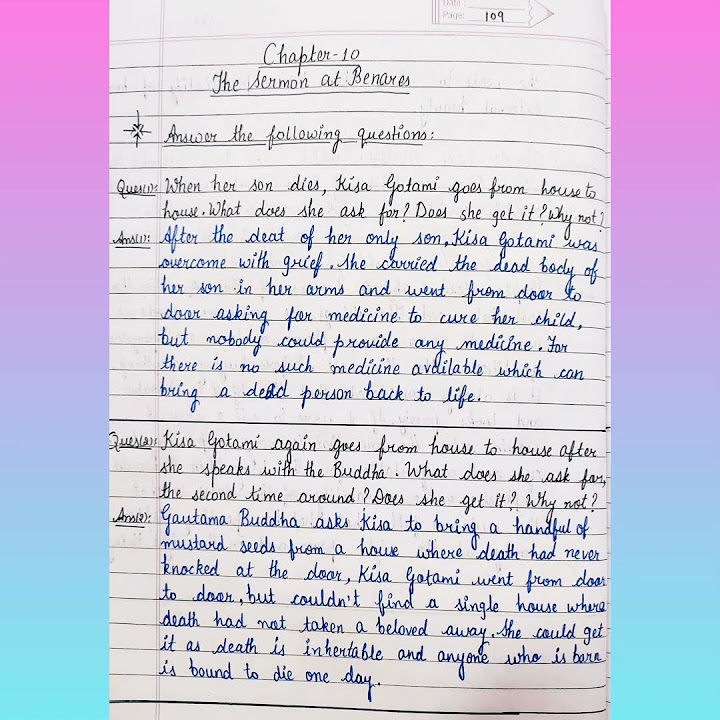 Date:
Page: 109
Chapter-10
The Sermon at Benares
Answer the following questions:
Ques(1): When her son dies, Kisa Gotami goes from house to
house. What does she ask for? Does she get it? Why not?
Ans(1): After the deat of her only son, Kisa Gotami was
overcome with grief. She carried the dead body of
her son in her arms and went from door to
door asking for medicine to cure her child,
but nobody could provide any medicine. For
there is no such medicine available which can
bring a dead person back to life.
Ques(2): Kisa Gotami again goes from house to house after
she speaks with the Buddha. What does she ask for,
the second time around? Does she get it? Why not?
Ans(2): Gautama Buddha asks Kisa to bring a handful of
mustard seeds from a house where death had never
knocked at the door, Kisa Gotami went from door
to door, but couldn't find a single house where
death had not taken a beloved away. She could get
it as death is inhertable and anyone who is born
is bound to die one day.